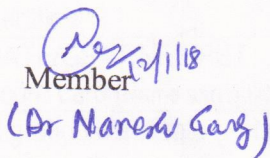 12/1/18
Member
(Dr Naresh Garg)